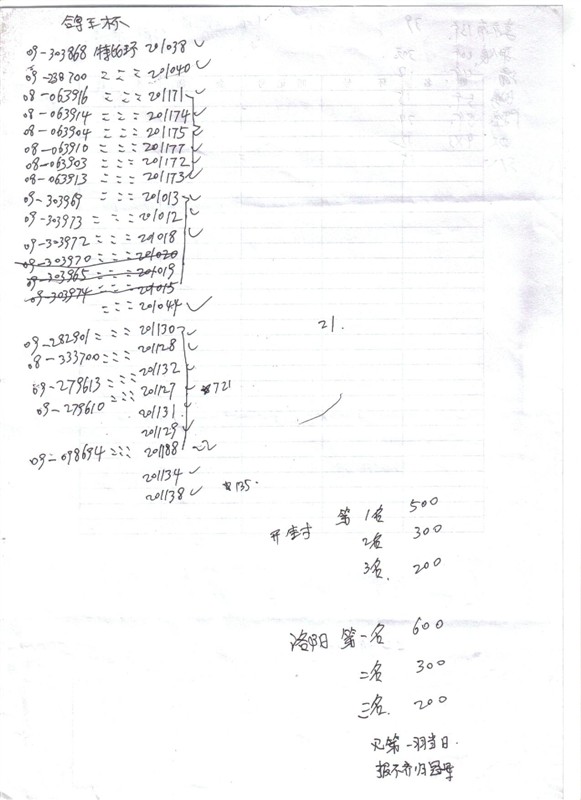 鸽王杯
09-303868 特比环 201038 ✓
09-238700 〃 〃 〃 201040 ✓
08-063916 〃 〃 〃 201171 ✓
08-063914 〃 〃 〃 201174 ✓
08-063904 〃 〃 〃 201175 ✓
08-063910 〃 〃 〃 201177 ✓
08-063903 〃 〃 〃 201172 ✓
08-063913 〃 〃 〃 201173 ✓
09-303969 〃 〃 〃 201013 ✓
09-303973 〃 〃 〃 201012 ✓
09-303972 〃 〃 〃 201018 ✓
09-303970 〃 〃 〃 201020
09-303965 〃 〃 〃 201019
09-303974 〃 〃 〃 201015
〃 〃 〃 201044 ✓
09-282901 〃 〃 〃 201130 ✓
08-333700 〃 〃 〃 201128 ✓
201132 ✓
09-279613 〃 〃 〃 201127 ✓ 721
09-279610 〃 〃 〃 201131
201129 ✓
09-098694 〃 〃 〃
201134 ✓
201138 ✓ 135.
21.
开封 第1名 500
2名 300
3名. 200
洛阳 第一名 600
二名 300
三名. 200
第一羽当日.
报不齐归冠军